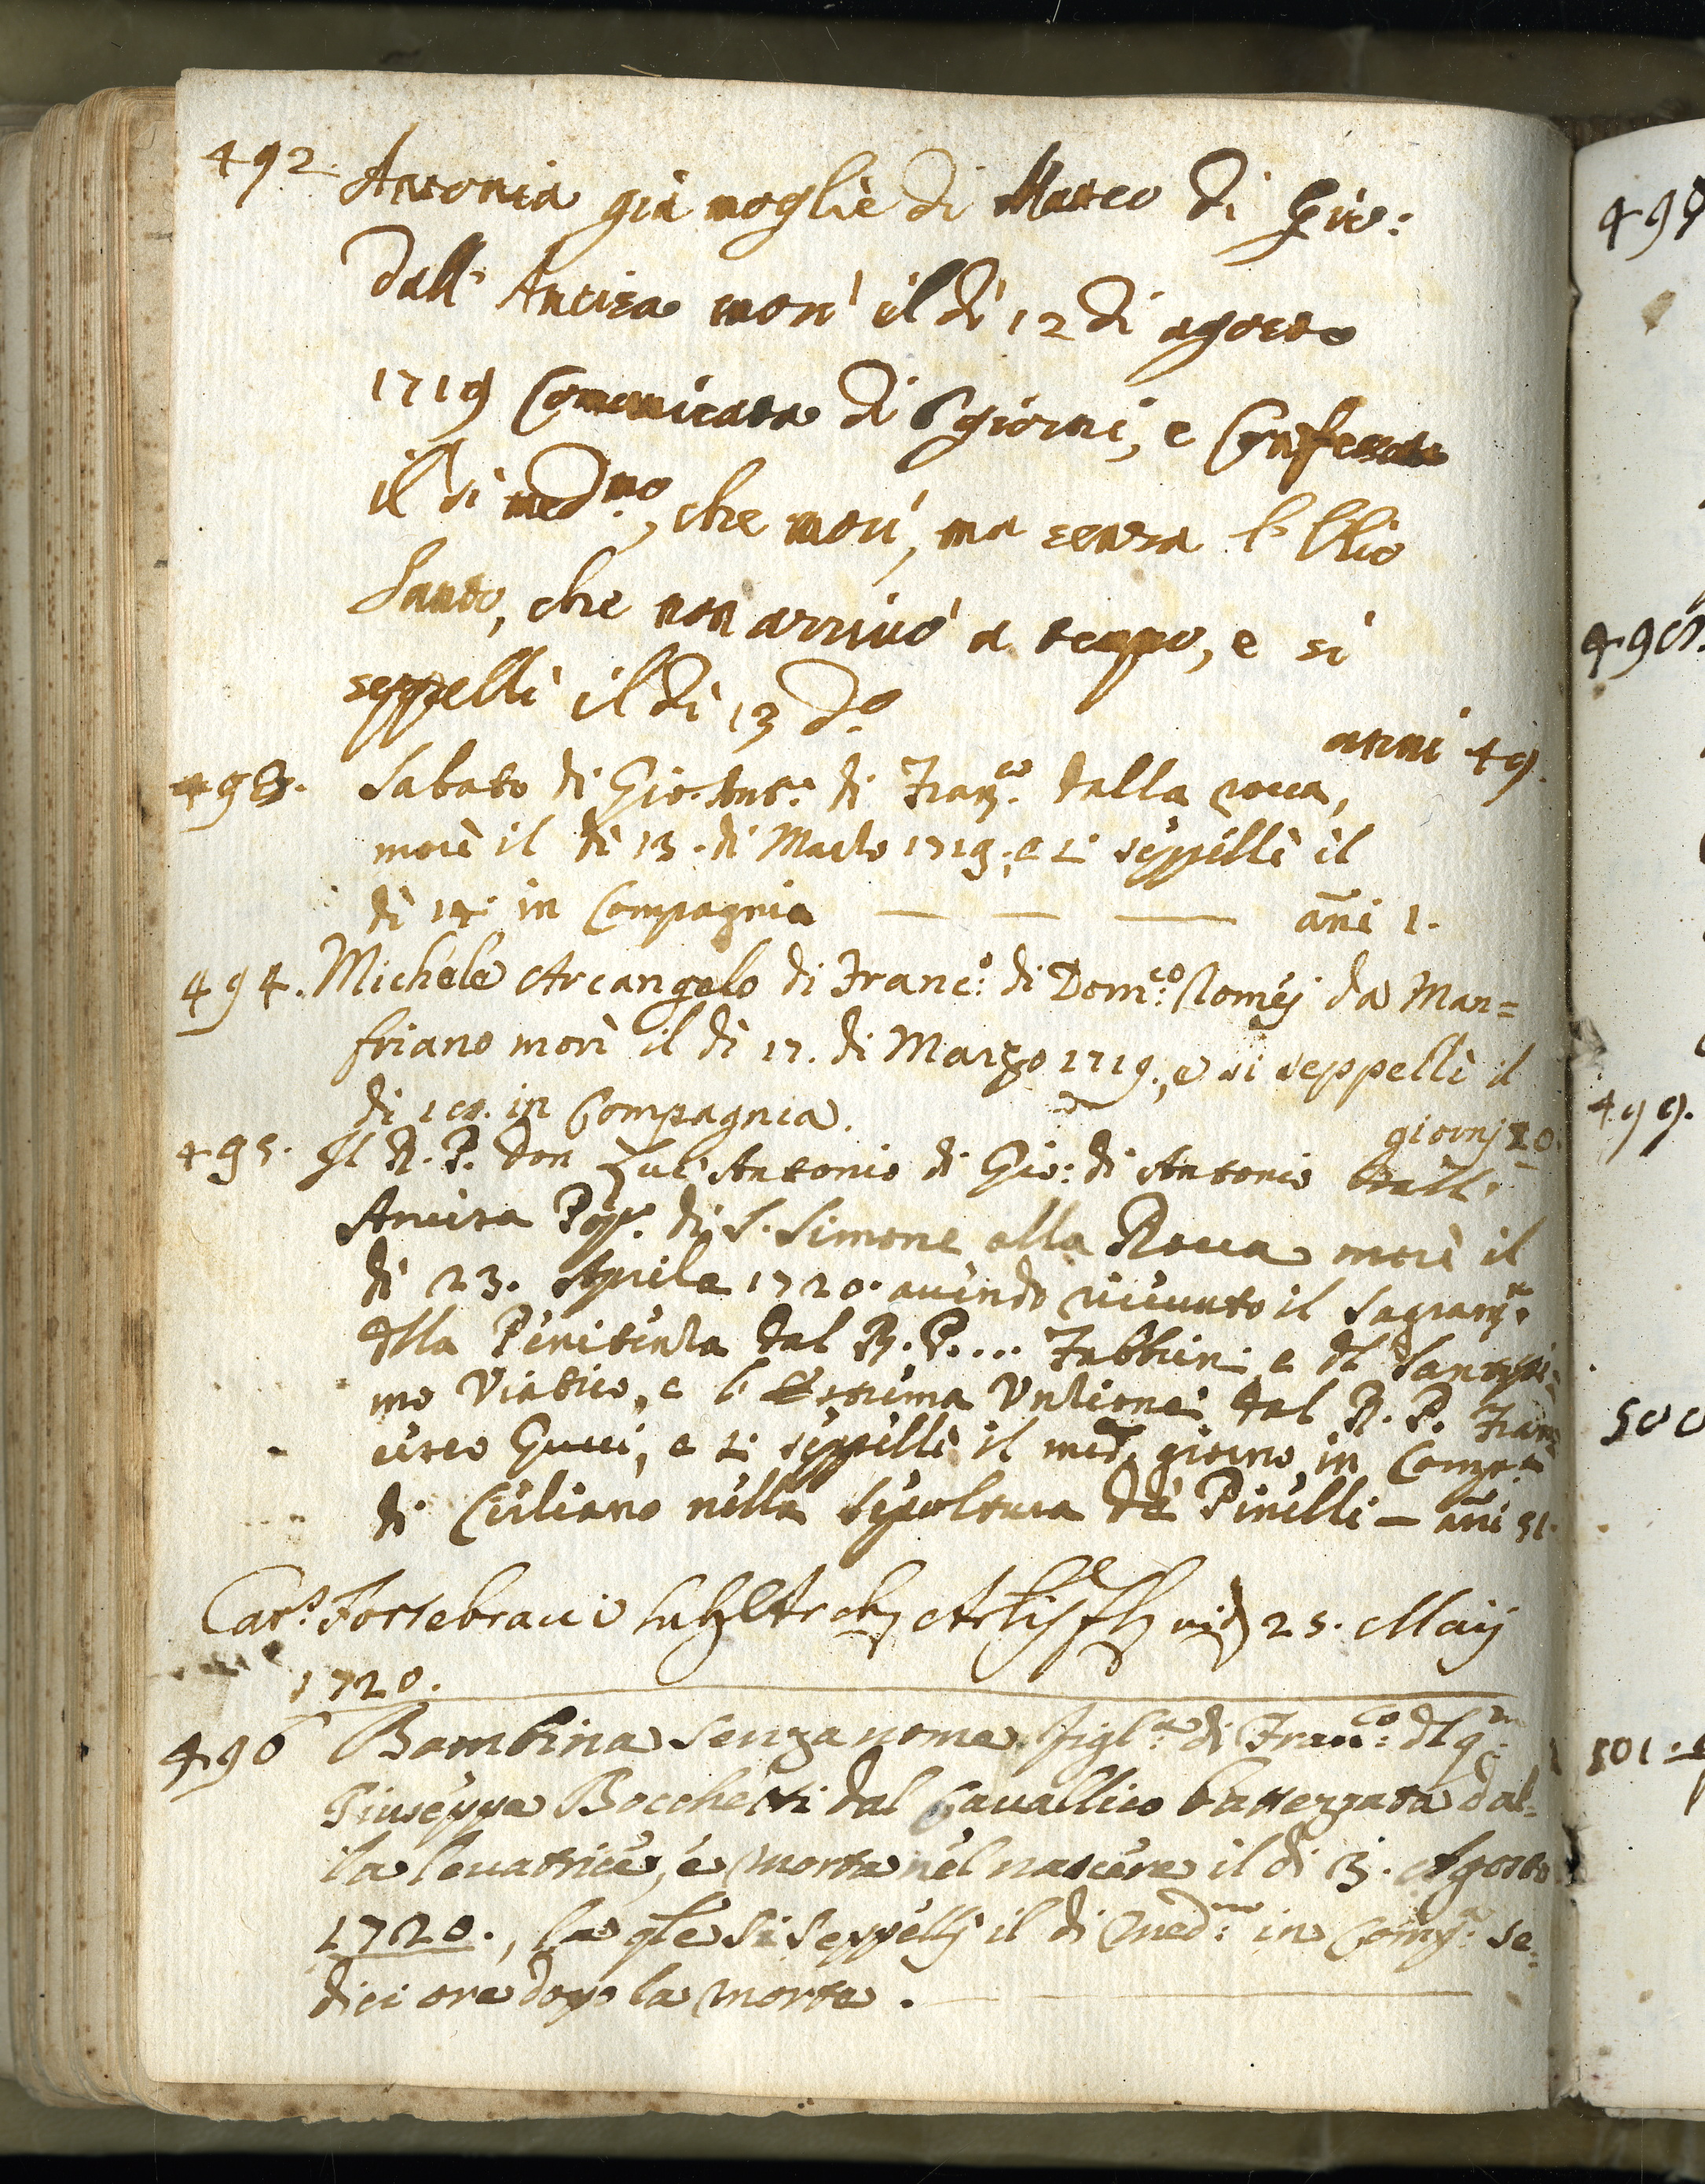 492. Antonia già moglie di Marco di Gio:
dall' Ancisa morì il dì 12 di agosto
1719 Comunicata di 6 giorni, e Confessata
il dì med.mo, che morì, ma senza l'Olio
Santo, che non arrivò a tempo, e si
seppellì il dì 13 d.o
anni 49.
493. Sabato di Gio. Ant.o di Fran.co dalla rocca,
morì il dì 13. di Marzo 1719. e si seppellì il
dì 14. in Compagnia — — — añi 1.
494. Michele Arcangelo di Franc.o di Dom.co Romej da Man=
friano morì il dì 17. di Marzo 1719., e si seppellì il
dì 18. in Compagnia.
giornj 20.
495. Il R. P. Don Luc'Antonio di Gio: di Antonio dall'
Ancisa Pop.o di S. Simone alla Rocca morì il
dì 23. Aprile 1720. avendo ricevuto il Sagram.to
dlla Penitenza dal R. P. ... Fabbrini e dl Santissi=
mo Viatico, e l'Estrema Unzione dal R. P. Fran=
cesco Gucci, e si seppellì il med.o giorno in Comp.a
di Ciciliano nella sepoltura de' Pinelli — añi 51.
Car.s Fortebracci 25. Maij
1720.
496 Bambina senza nome figl.a di Fran.co dl q.m
Giuseppe Bocchetti dal Cavallico battezzata dal=
la levatrice, e morta nel nascere il dì 3. Agosto
1720., la qle si seppellj il dì med.mo in Comp.a se=
dici ore dopo la morte.
498
499.
500
501.